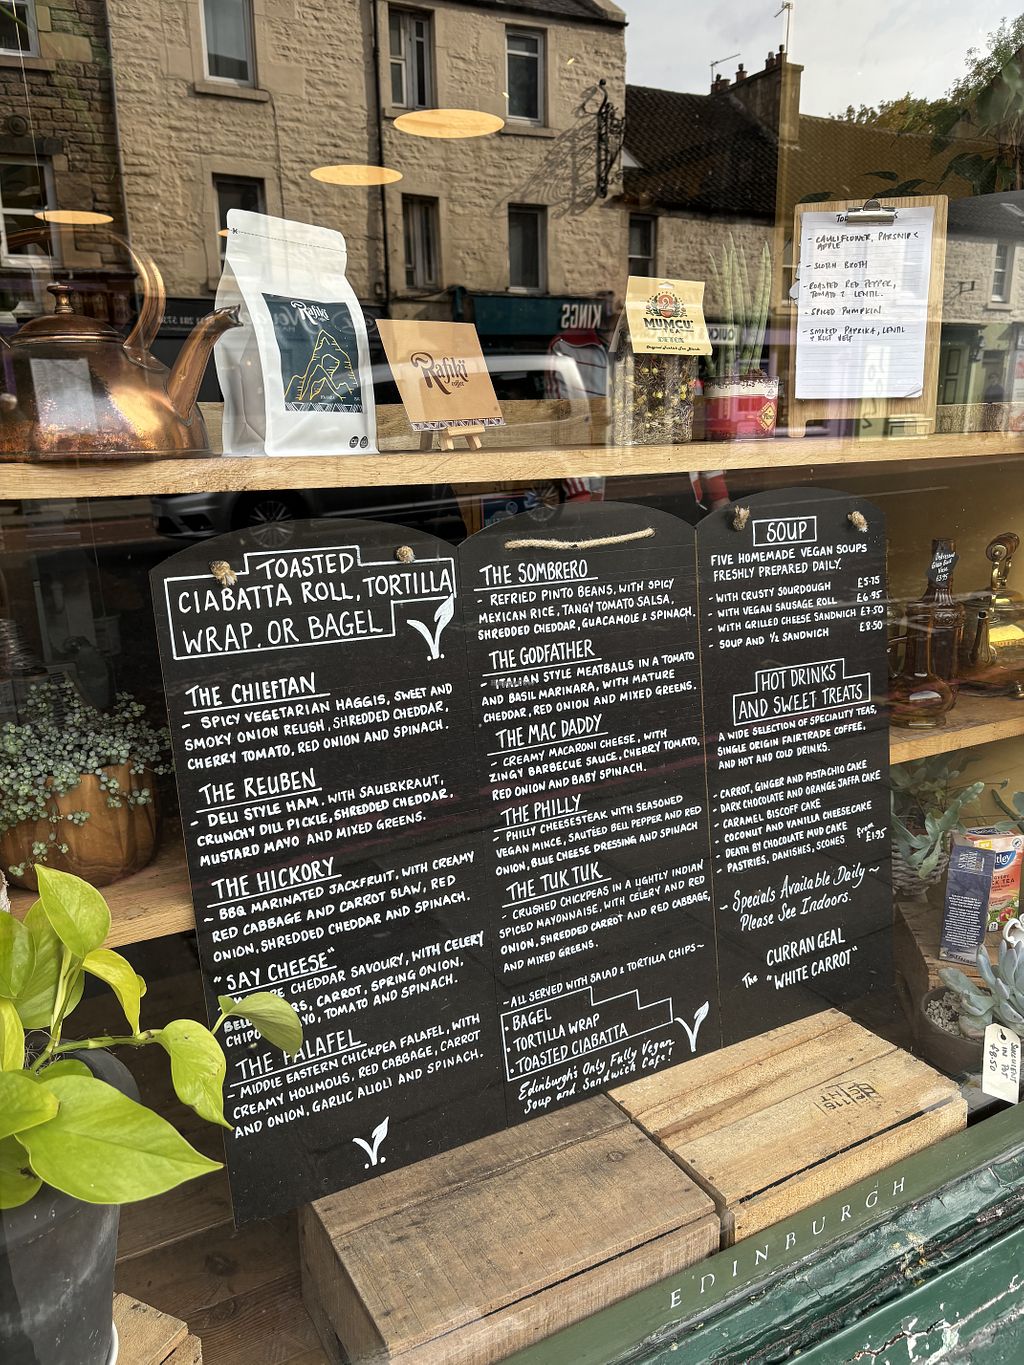 Rafiki
Rafiki
coffee
MUMCU
DETOX
KINGS
- CAULIFLOWER, PARSNIP &
APPLE
- SLOTH BROTH
- ROASTED RED PEPPER,
TOMATO & LENTIL.
- SPICED PUMPKIN
- SMOKED PAPRIKA, LENTIL
& ROOT VEG
TOASTED
CIABATTA ROLL, TORTILLA
WRAP. OR BAGEL
THE CHIEFTAN
- SPICY VEGETARIAN HAGGIS, SWEET AND
SMOKY ONION RELISH, SHREDDED CHEDDAR,
CHERRY TOMATO, RED ONION AND SPINACH.
THE REUBEN
- DELI STYLE HAM, WITH SAUERKRAUT,
CRUNCHY DILL PICKLE, SHREDDED CHEDDAR,
MUSTARD MAYO AND MIXED GREENS.
THE HICKORY
~ BBQ MARINATED JACKFRUIT, WITH CREAMY
RED CABBAGE AND CARROT SLAW, RED
ONION, SHREDDED CHEDDAR AND SPINACH.
"SAY CHEESE"
CHEDDAR SAVOURY, WITH CELERY
CARROT, SPRING ONION,
TOMATO AND SPINACH.
THE FALAFEL
- MIDDLE EASTERN CHICKPEA FALAFEL, WITH
CREAMY HOUMOUS, RED CABBAGE, CARROT
AND ONION, GARLIC ALIOLI AND SPINACH.
V.
THE SOMBRERO
- REFRIED PINTO BEANS, WITH SPICY
MEXICAN RICE, TANGY TOMATO SALSA,
SHREDDED CHEDDAR, GUACAMOLE & SPINACH.
THE GODFATHER
- ITALIAN STYLE MEATBALLS IN A TOMATO
AND BASIL MARINARA, WITH MATURE
CHEDDAR, RED ONION AND MIXED GREENS.
THE MAC DADDY
- CREAMY MACARONI CHEESE, WITH
ZINGY BARBECUE SAUCE, CHERRY TOMATO,
RED ONION AND BABY SPINACH.
THE PHILLY
- PHILLY CHEESESTEAK WITH SEASONED
VEGAN MINCE, SAUTÉED BELL PEPPER AND RED
ONION, BLUE CHEESE DRESSING AND SPINACH
THE TUK TUK
- CRUSHED CHICKPEAS IN A LIGHTLY INDIAN
SPICED MAYONNAISE, WITH CELERY AND RED
ONION, SHREDDED CARROT AND RED CABBAGE,
AND MIXED GREENS.
~ALL SERVED WITH SALAD & TORTILLA CHIPS~
• BAGEL
• TORTILLA WRAP
• TOASTED CIABATTA
Edinburgh's Only Fully Vegan
Soup and Sandwich Cafe!
SOUP
FIVE HOMEMADE VEGAN SOUPS
FRESHLY PREPARED DAILY.
- WITH CRUSTY SOURDOUGH £5.75
- WITH VEGAN SAUSAGE ROLL £6.95
- WITH GRILLED CHEESE SANDWICH £7.50
- SOUP AND ½ SANDWICH £8.50
HOT DRINKS
AND SWEET TREATS
A WIDE SELECTION OF SPECIALITY TEAS,
SINGLE ORIGIN FAIRTRADE COFFEE,
AND HOT AND COLD DRINKS.
- CARROT, GINGER AND PISTACHIO CAKE
- DARK CHOCOLATE AND ORANGE JAFFA CAKE
- CARAMEL BISCOFF CAKE
- COCONUT AND VANILLA CHEESECAKE
- DEATH BY CHOCOLATE MUD CAKE From
- PASTRIES, DANISHES, SCONES £1.95
~ Specials Available Daily ~
Please See Indoors.
CURRAN GEAL
The "WHITE CARROT"
SUCCULENT
IN POT
£8.50
EDINBURGH